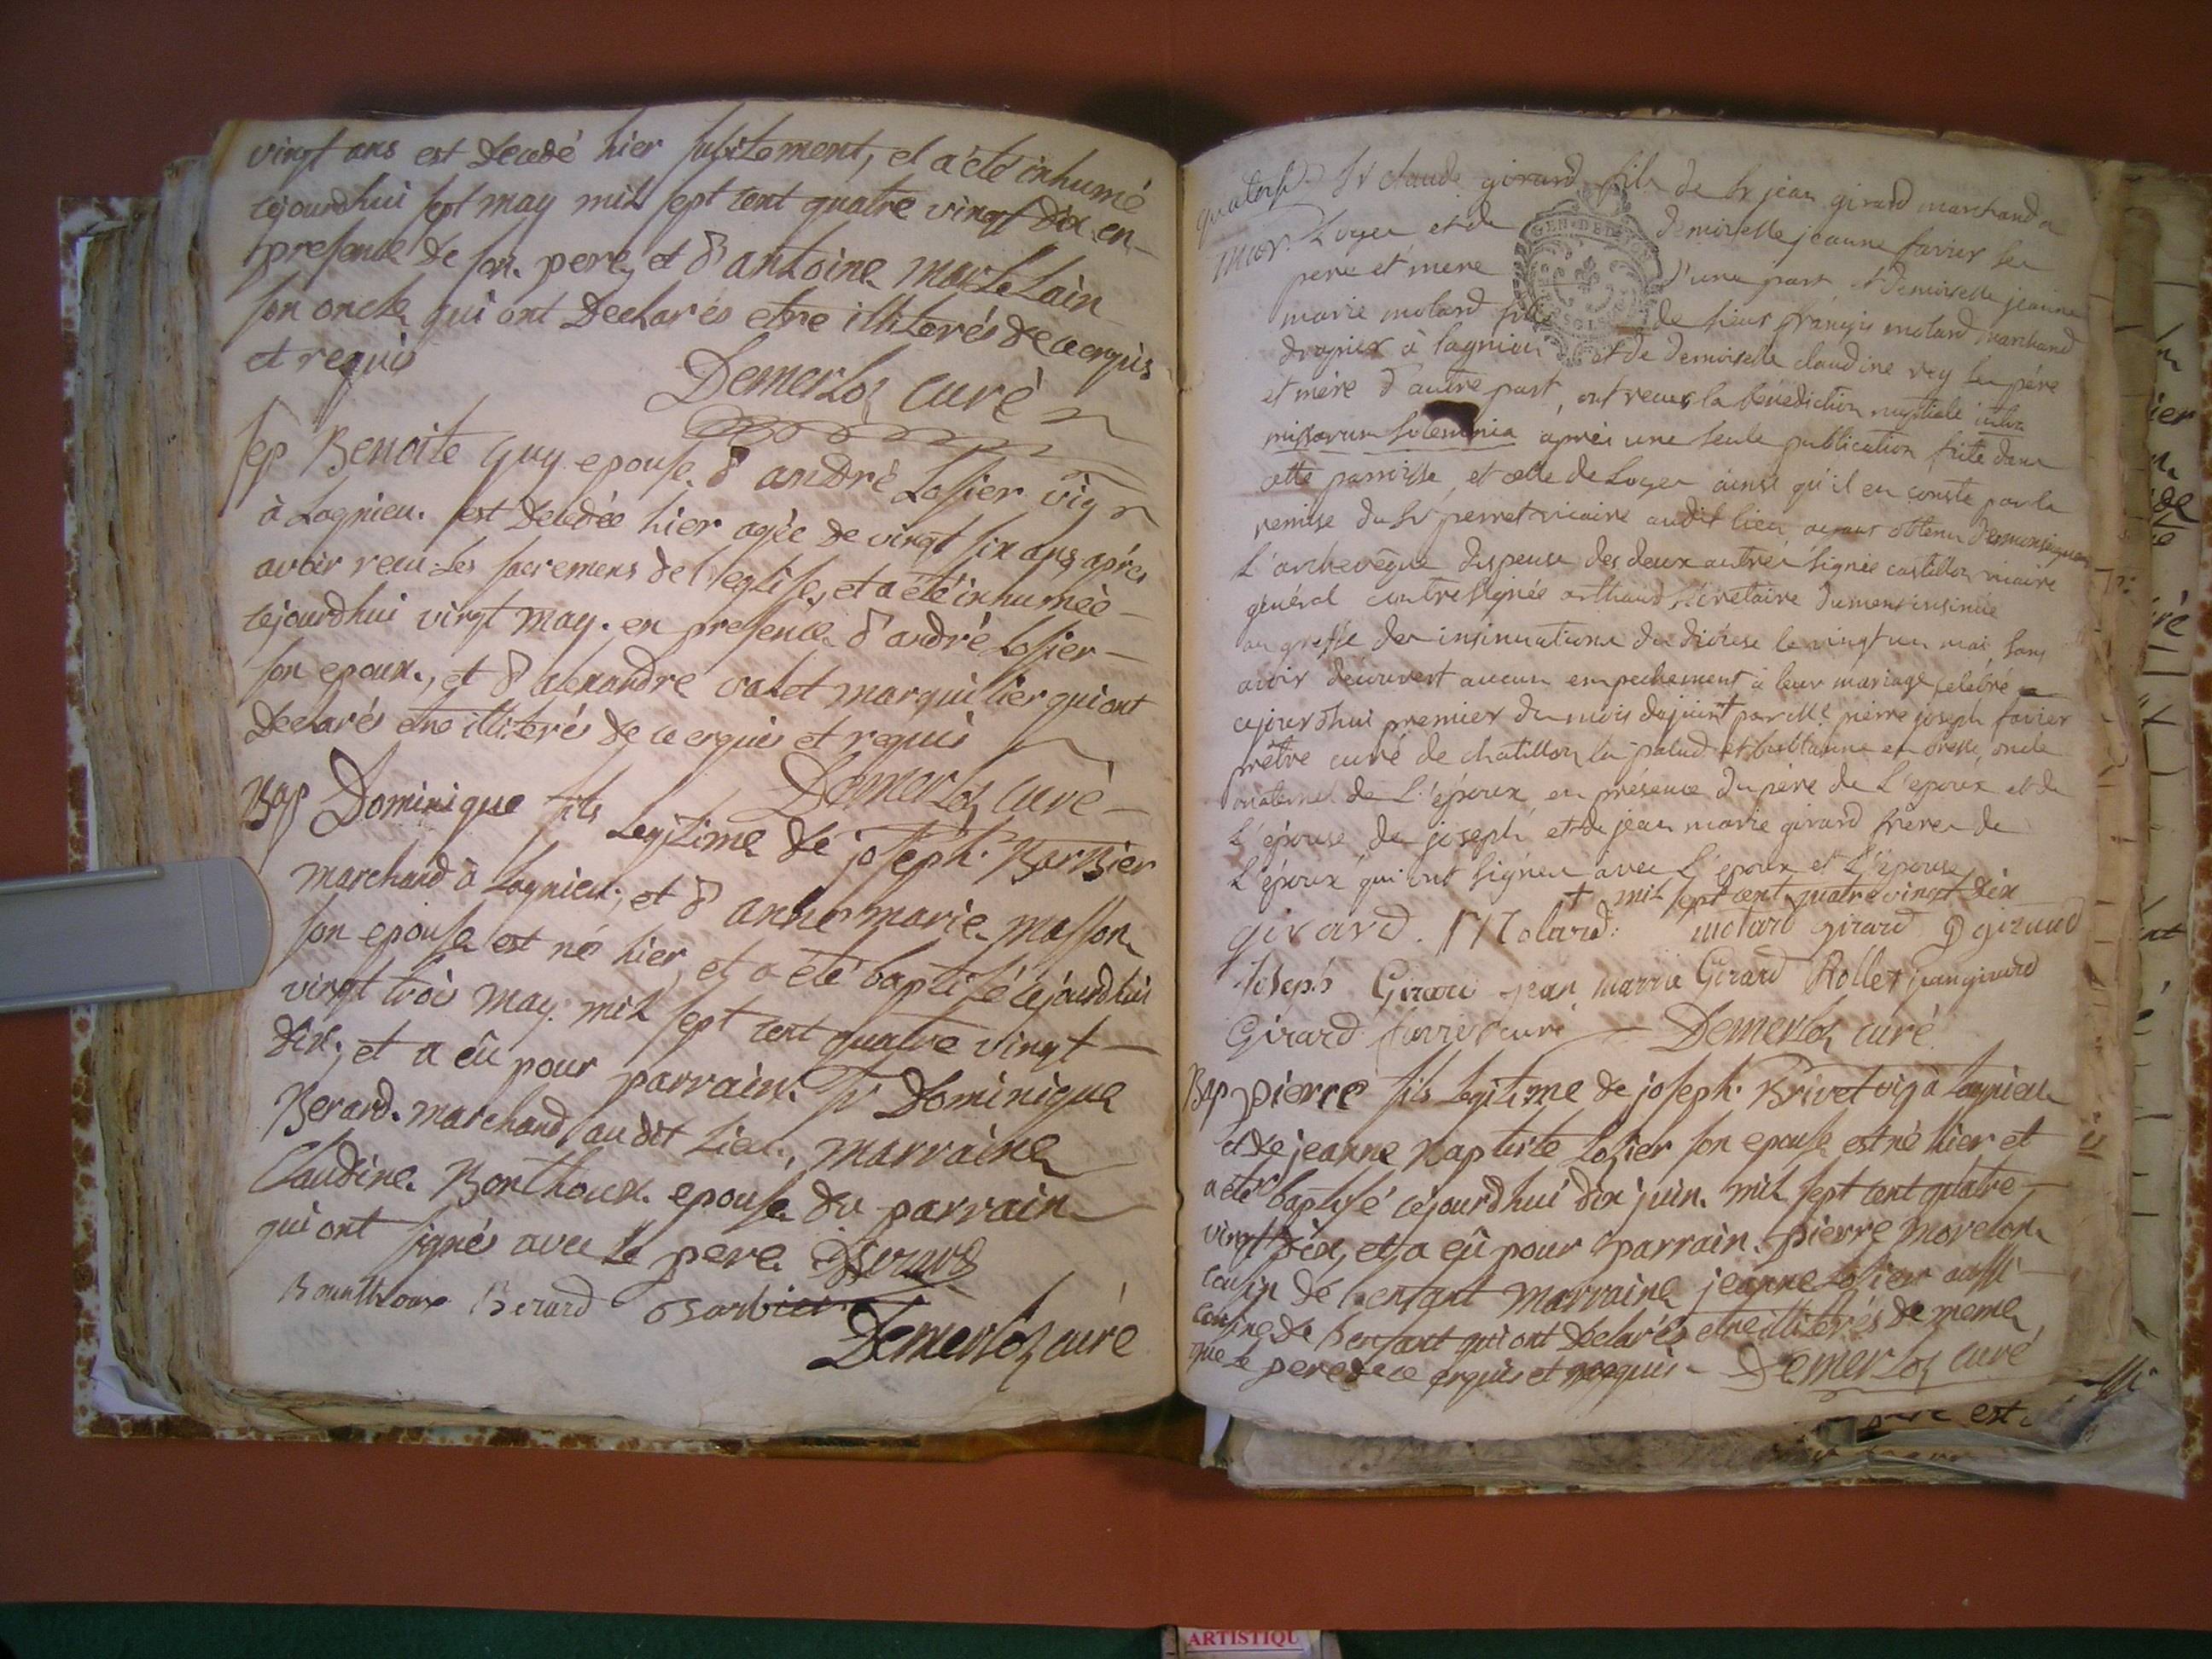 vingt ans est decedé hier subitement, et a été inhumé
cejourdhui sept may mil sept cent quatre vingt dix en
presence de son pere, et d'antoine martelain
son oncle qui ont declarés etre illiterés de ce enquis
et requis
Demerloz curé
sep Benoite Guy epouse d'andré Losier vig
à Lagnieu est decedée hier agée de vingt six ans, aprés
avoir recu les sacremens de l'eglise, et a été inhumée
cejourdhui vingt may. en presence d'andré Losier
son epoux, et d'alexandre valet marguillier qui ont
declarés etre illiterés de ce enquis et requis
Demerloz curé
Bap Dominique fils legitime de joseph Barbier
marchand à Lagnieu, et d'anne marie masson
son epouse est né hier, et a été baptisé cejourdhui
vingt trois may mil sept cent quatre vingt
dix, et a eû pour parrain Sr Dominique
Berard marchand au dit lieu, marraine
Claudine Bonthoux epouse du parrain
qui ont signés avec le pere Berard
Bounthoux Berard Barbier
Demerloz curé
quatorse Sr claude girard fils de Sr jean girard marchand a
mar Loyer et de demoiselle jeanne favier ses
GEN DE DIJON
pere et mere d'une part et demoiselle jeanne
marie molard fille de sieur françois molard marchand
drapier à lagnieu et de demoiselle claudine rey ses père
et mère d'autre part, ont recues la bénédiction nuptiale intra
missarum solemnia après une seule publication faite dans
cette parroisse, et celle de Loyer ainsi qu'il en conste par la
remise du Sr perret vicaire audit lieu ayant obtenu de monseigneur
L'archevêque dispense des deux autres signée castillon vicaire
général contresignée arthaud secretaire dument insinuée
au greffe des insinuations du diocese le vingt un mai, sans
avoir decouvert aucun empechement à leur mariage celebré
cejourd'hui premier du mois de juin + par Me pierre joseph favier
prêtre curé de chatillon la palud et en bresse, oncle
maternel de L'époux, en présence du père de L'epoux et de
L'épouse de joseph et de jean marie girard frères de
L'époux qui ont signés avec L'epoux et L'épouse
+ mil sept cent quatre vingt dix
girard. Molard: molard girard girard
Joseph Girard jean marie Girard Rollet jean girard
Girard favier curé Demerloz curé
Bap pierre fils legitime de joseph Brivet vig à Lagnieu
et de jeanne Baptiste Losier son epouse est né hier et
a été baptisé cejourdhui dix juin mil sept cent quatre
vingt dix, et a eû pour parrain pierre morelon
cousin de l'enfant marraine jeanne Losier aussi
cousine de l'enfant qui ont declarés etre illiterés de meme
que le pere de ce enquis et requis Demerloz curé
ARTISTIQU